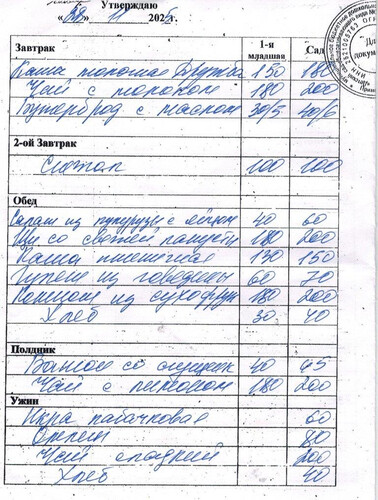 Утверждаю
«28» 11 2025
Завтрак 1-я младшая Сад
Каша молочная Дружба 150 180
Чай с молоком 180 200
Бутерброд с маслом 30/5 40/6
2-ой Завтрак
Снежок 100 100
Обед
Салат из кукурузы с яйцом 40 60
Щи со свежей капусты 180 200
Каша пшеничная 130 150
Гуляш из говядины 60 70
Компот из сухофрук 180 200
Хлеб 30 40
Полдник
Ванное со сгущен 40 45
Чай с лимоном 180 200
Ужин
Икра кабачковая 60
Омлет 80
Чай сладкий 200
Хлеб 40